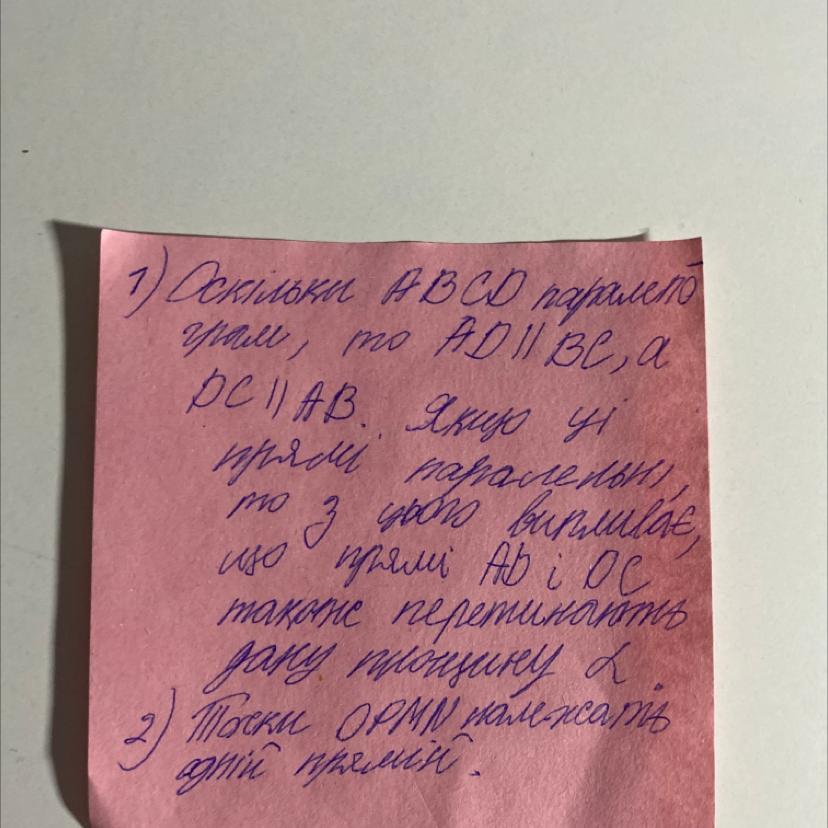 1) Оскільки ABCD паралело
грам, то AD || BC, а
DC || AB. Якщо ці
прямі паралельні,
то з цього випливає,
що прямі AD і DC
також перетинають
дану площину α.
2) Точки OPMN належать
одній прямій.